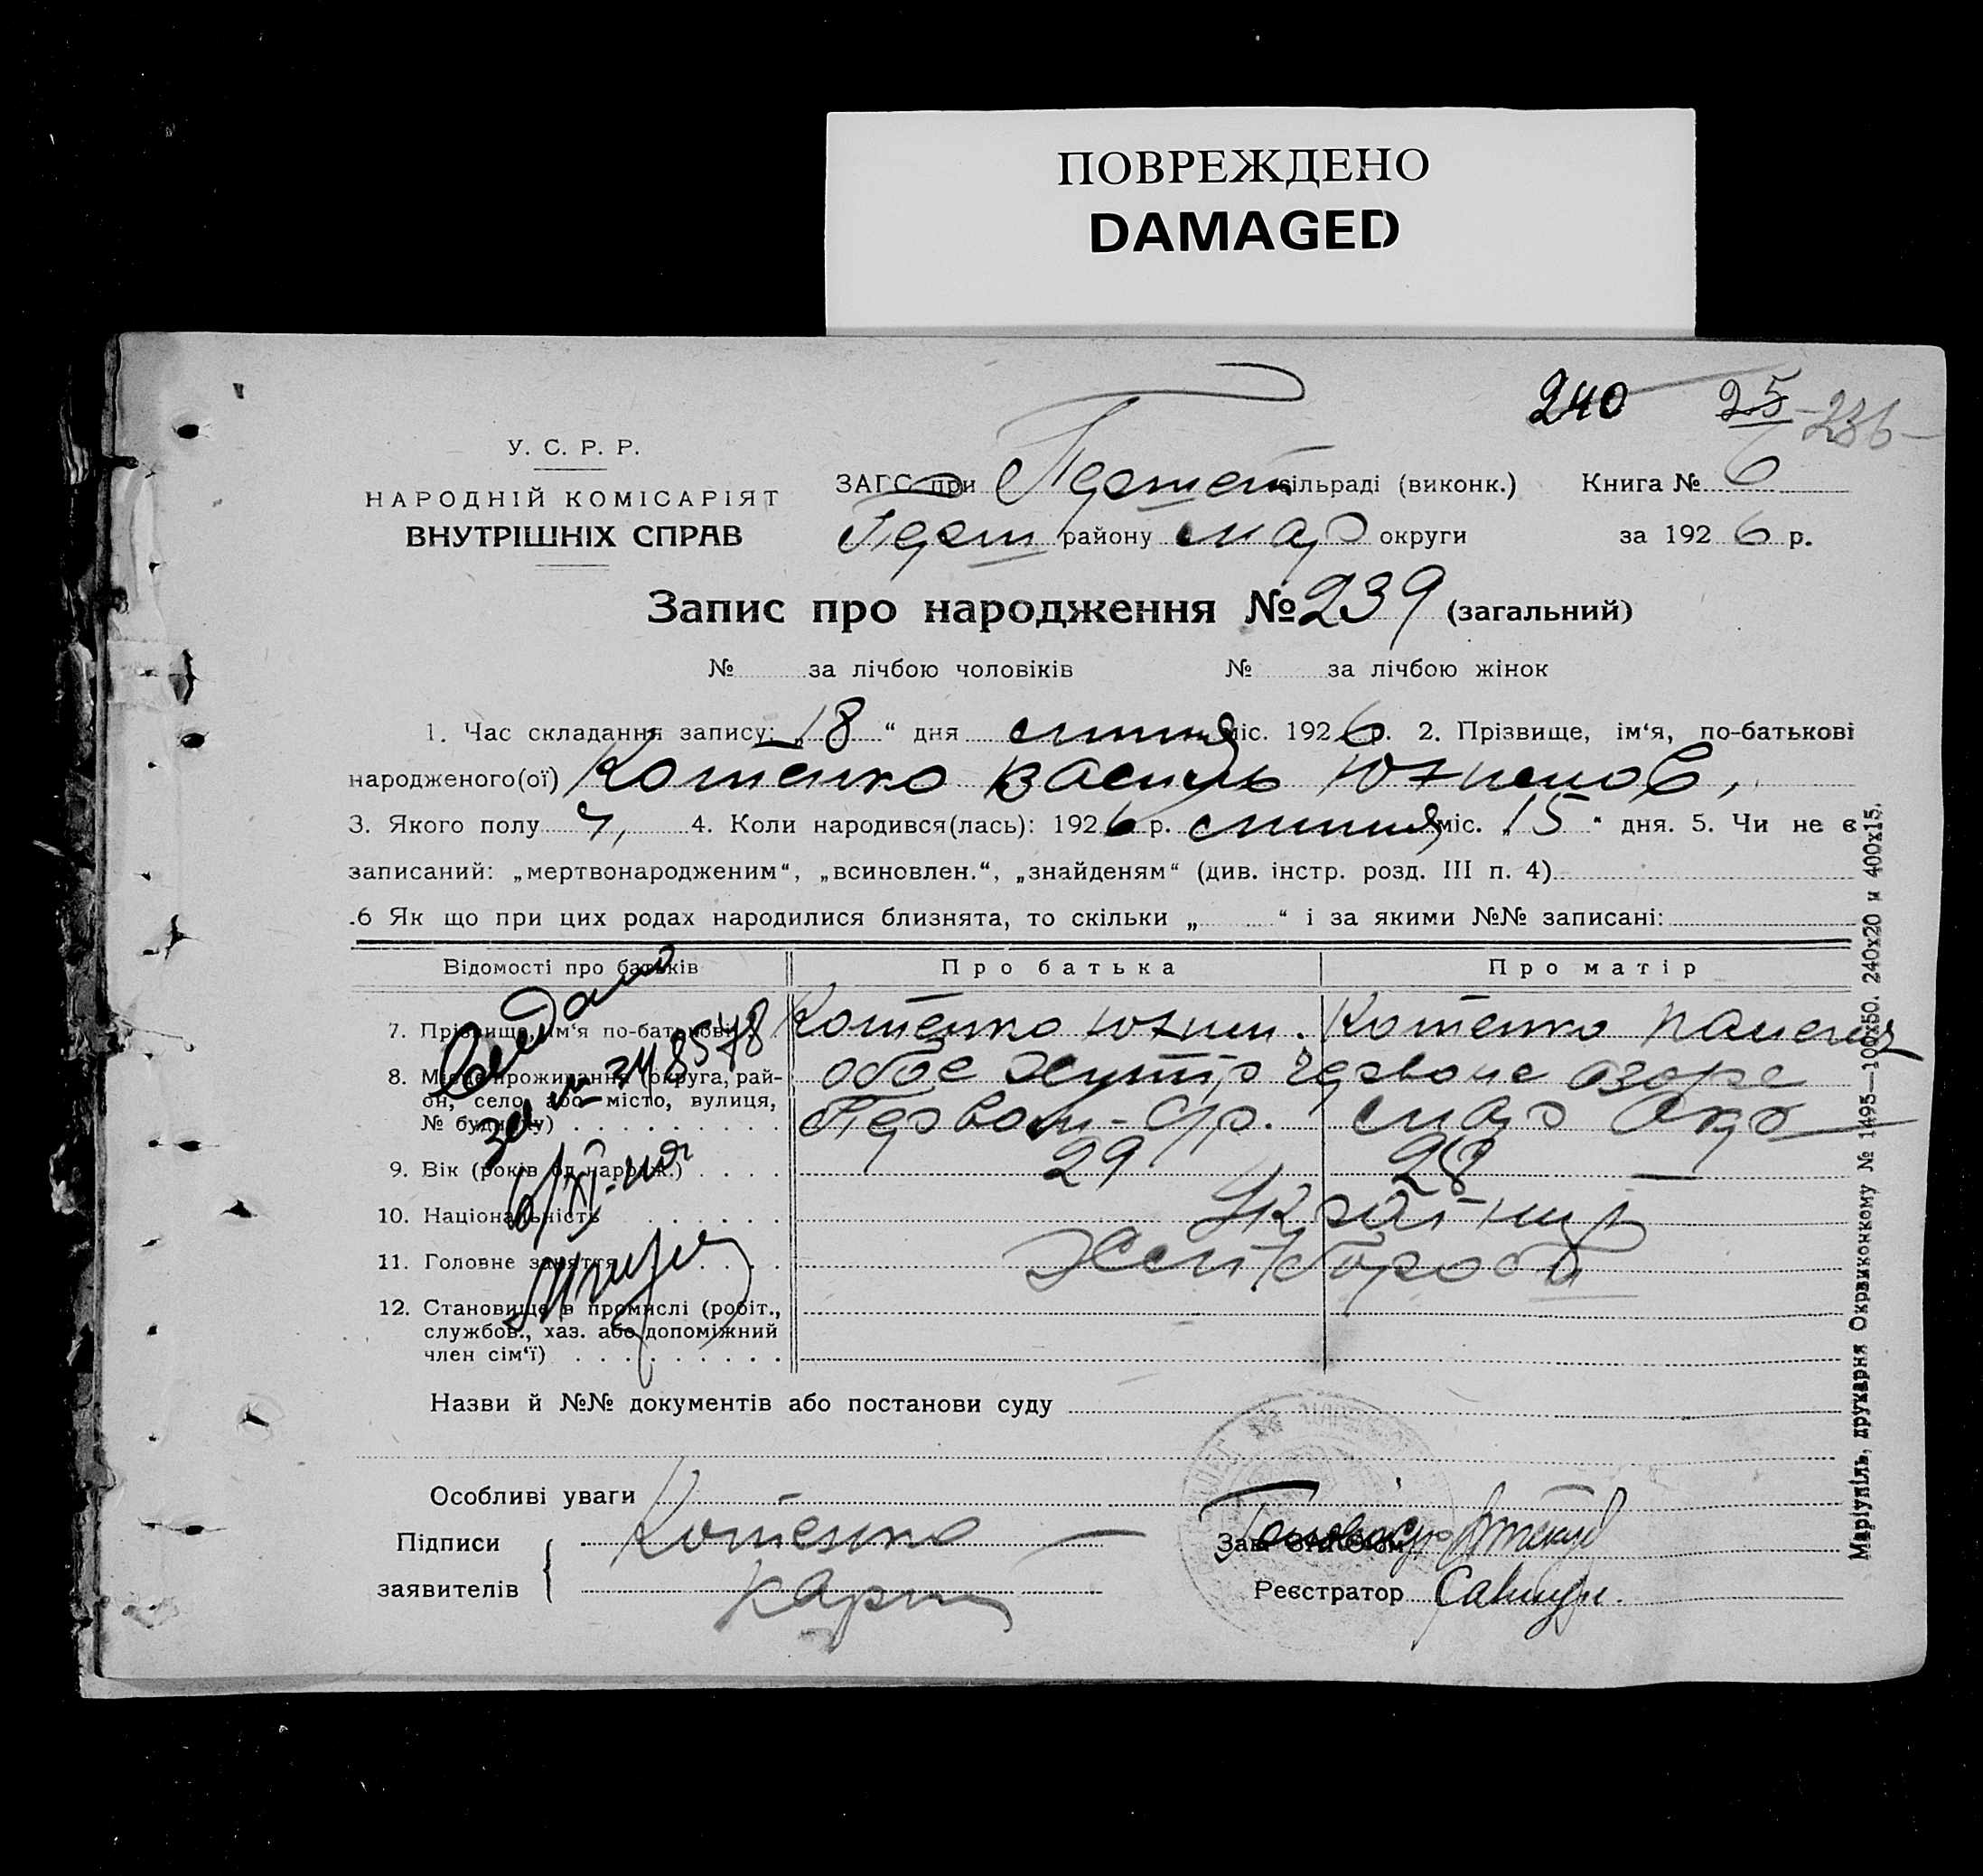 ПОВРЕЖДЕНО
DAMAGED
240 25 -236-
У. С. Р. Р.
НАРОДНІЙ КОМІСАРІЯТ
ВНУТРІШНІХ СПРАВ
ЗАГС при сільраді (виконк.) Книга № 6
Перш району Мар округи за 1926 р.
Запис про народження № 239 (загальний)
№ за лічбою чоловіків № за лічбою жінок
1. Час складання запису: „18“ дня липня міс. 1926 р. 2. Прізвище, ім‘я, по-батькові
народженого(ої) Котенко Василь Юхимов,
3. Якого полу ч, 4. Коли народився(лась): 1926 р. липня міс. „15“ дня. 5. Чи не є
записаний: „мертвонародженим“, „всиновлен.“, „знайденям“ (див. інстр. розд. III п. 4)
.6 Як що при цих родах народилися близнята, то скільки „ “ і за якими №№ записані:
Відомості про батьків Про батька Про матір
7. Прізвище, ім‘я по-батькові Котенко Юхим. Котенко
8. Місце проживання (округа, рай-
он, село, або місто, вулиця,
№ будинку)
обоє хутір Червоне озоре
с/р. Мар Окр
9. Вік (років од народж.) 29 28
10. Національність Країнці
11. Головне заняття Хліборобі
12. Становище в промислі (робіт.,
службов., хаз. або допоміжний
член сім‘ї)
Видано
за № 248578
Назви й №№ документів або постанови суду
Особливі уваги
Підписи
заявителів
Котенко
Карп
Зав. ЗАГС‘ом
Реєстратор
Маріупіль, друкарня Окрвиконкому № 1495—100х50. 240х20 и 400х15.